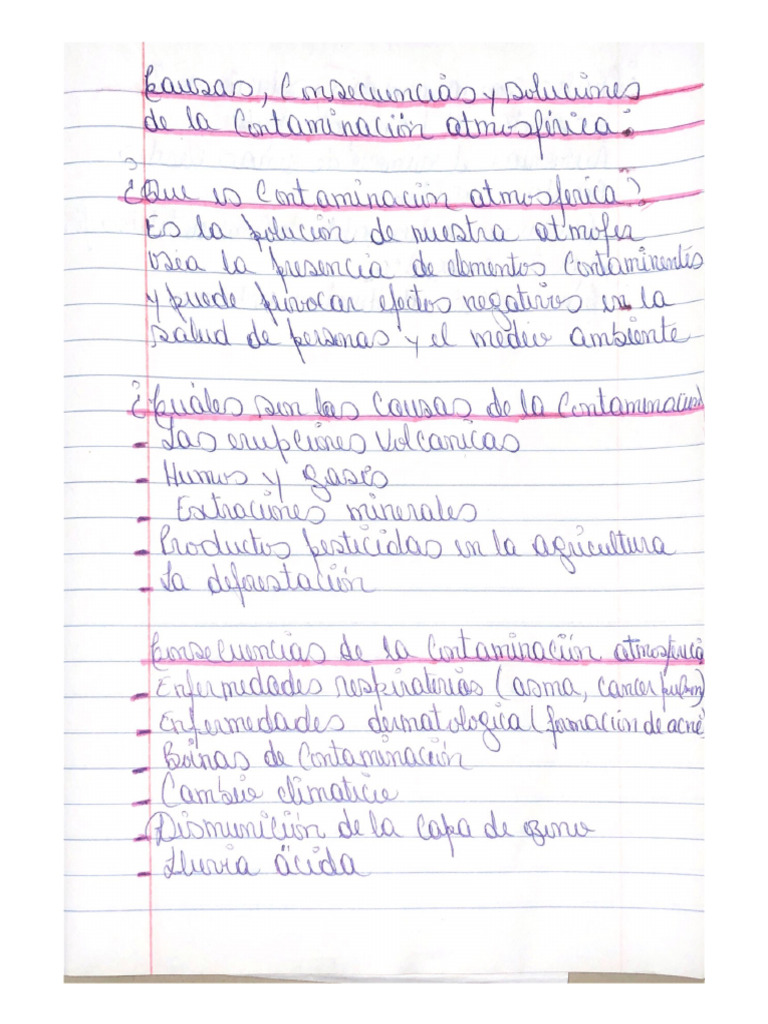 Causas, Consecuencias y soluciones
de la Contaminación atmosférica:
¿Que es Contaminación atmosferica?
Es la polución de nuestra atmofer
osea la presencia de elementos Contaminentes
y puede provocar efectos negativos en la
salud de personas y el medio ambiente
¿Cuáles son las Causas de la Contaminación
- Las erupciones Volcanicas
- Humos y gases
- Extraciones minerales
- Productos pesticidas en la agricultura
- La deforestación
Consecuencias de la Contaminación atmosferica
- Enfermedades respiratorias (asma, cancer pulmon)
- Enfermedades dermatologica (formación de acné)
- Boinas de Contaminación
- Cambio climatico
- Dismunición de la capa de ozono
- Lluvia ácida